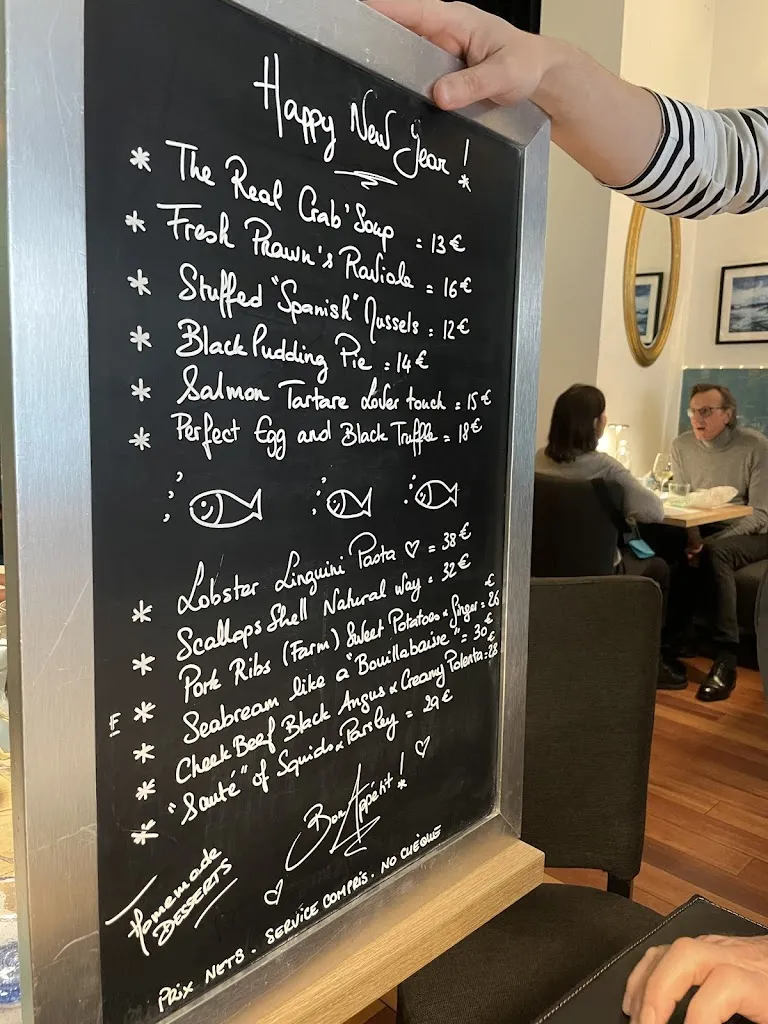 Happy New Year !
* The Real Crab' Soup = 13€
* Fresh Prawn's Raviole = 16€
* Stuffed "Spanish" Mussels = 12€
* Black Pudding Pie = 14€
* Salmon Tartare Lover touch = 15€
* Perfect Egg and Black Truffle = 18€
* Lobster Linguini Pasta ♡ = 38€
* Scallops Shell Natural way = 32€
* Pork Ribs (Farm) Sweet Potatoes & Ginger = 26€
* Seabream like a "Bouillabaisse" = 30€
* Cheek Beef Black Angus & Creamy Polenta = 28
* "Sauté" of Squids & Parsley = 29€
Bon Appétit !
Homemade
DESSERTS
PRIX NETS . SERVICE COMPRIS . NO CHÈQUE